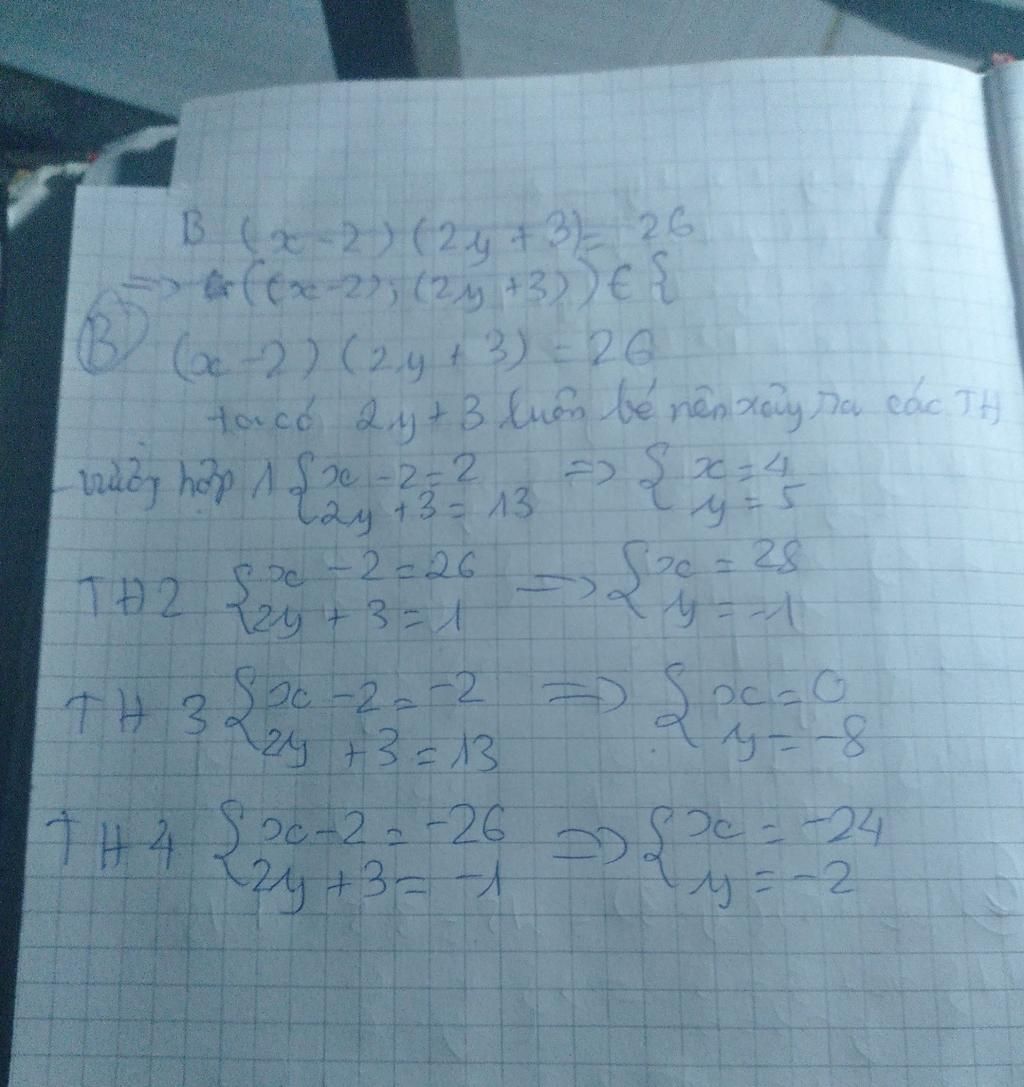 B (x-2)(2y+3)= 26
=> ((x-2); (2y+3)) ∈ {
B) (x-2)(2y+3) = 26
ta có 2y+3 luôn bé nên xảy ra các TH
trường hợp 1 { x-2=2 => { x=4
2y+3=13 y=5
TH2 { x-2=26 => { x=28
2y+3=1 y=-1
TH3 { x-2=-2 => { x=0
2y+3=13 y=-8
TH4 { x-2=-26 => { x=-24
2y+3=-1 y=-2